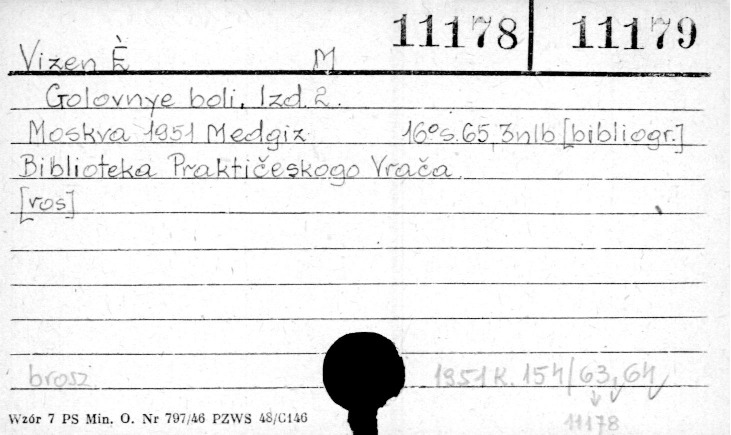 11178 11179
Vizen È M
Golovnye boli. Izd. 2.
Moskva 1951 Medgiz 16° s. 65, 3nlb [bibliogr.]
Biblioteka Praktičeskogo Vrača.
[ros]
brosz 1951 K. 154/63, 64
11178
Wzór 7 PS Min. O. Nr 797/46 PZWS 48/C146